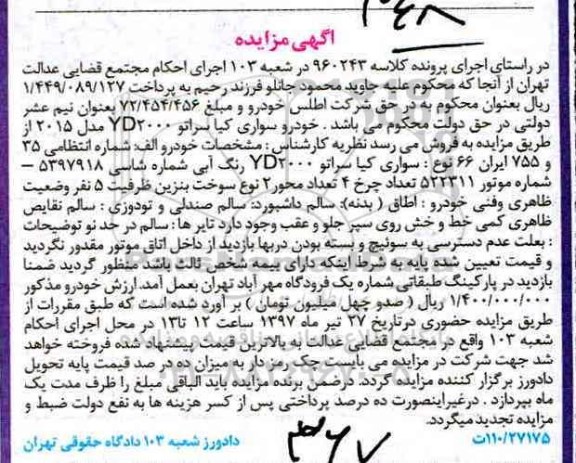 ۳۶۸
آگهی مزایده
در راستای اجرای پرونده کلاسه ۹۶۰۲۴۳ در شعبه ۱۰۳ اجرای احکام مجتمع قضایی عدالت
تهران از آنجا که محکوم علیه جاوید محمود جانلو فرزند رحیم به پرداخت ۱/۴۴۹/۰۸۹/۱۲۷
ریال بعنوان محکوم به در حق شرکت اطلس خودرو و مبلغ ۷۲/۴۵۴/۴۵۶ بعنوان نیم عشر
دولتی در حق دولت محکوم می باشد . خودرو سواری کیا سراتو YD۲۰۰۰ مدل ۲۰۱۵ از
طریق مزایده به فروش می رسد نظریه کارشناس : مشخصات خودرو الف: شماره انتظامی ۳۵
و ۷۵۵ ایران ۶۶ نوع : سواری کیا سراتو YD۲۰۰۰ رنگ آبی شماره شاسی ۵۳۹۷۹۱۸ –
شماره موتور ۵۲۲۳۱۱ تعداد چرخ ۴ تعداد محور۲ نوع سوخت بنزین ظرفیت ۵ نفر وضعیت
ظاهری وفنی خودرو : اطاق ( بدنه): سالم داشبورد: سالم صندلی و تودوزی : سالم نقایص
ظاهری کمی خط و خش روی سپر جلو و عقب وجود دارد تایر ها : سالم در حد نو توضیحات
: بعلت عدم دسترسی به سوئیچ و بسته بودن دربها بازدید از داخل اتاق موتور مقدور نگردید
و قیمت تعیین شده پایه به شرط اینکه دارای بیمه شخص ثالث باشد منظور گردید ضمنا
بازدید در پارکینگ طبقاتی شماره یک فرودگاه مهر آباد تهران بعمل آمد. ارزش خودرو مذکور
۱/۴۰۰/۰۰۰/۰۰۰ ریال ( صدو چهل میلیون تومان ) بر آورد شده است که طبق مقررات از
طریق مزایده حضوری درتاریخ ۲۷ تیر ماه ۱۳۹۷ ساعت ۱۲ تا۱۳ در محل اجرای احکام
شعبه ۱۰۳ واقع در مجتمع قضایی عدالت به بالاترین قیمت پیشنهاد دهنده فروخته خواهد
شد جهت شرکت در مزایده می بایست چک رمز دار به میزان ده در صد قیمت پایه تحویل
دادورز برگزار کننده مزایده گردد. درضمن برنده مزایده باید الباقی مبلغ را ظرف مدت یک
ماه بپردازد . درغیراینصورت ده درصد پرداختی پس از کسر هزینه ها به نفع دولت ضبط و
مزایده تجدید میگردد.
۱۱۰/۲۷۱۷۵ت دادورز شعبه ۱۰۳ دادگاه حقوقی تهران
۳۶۷